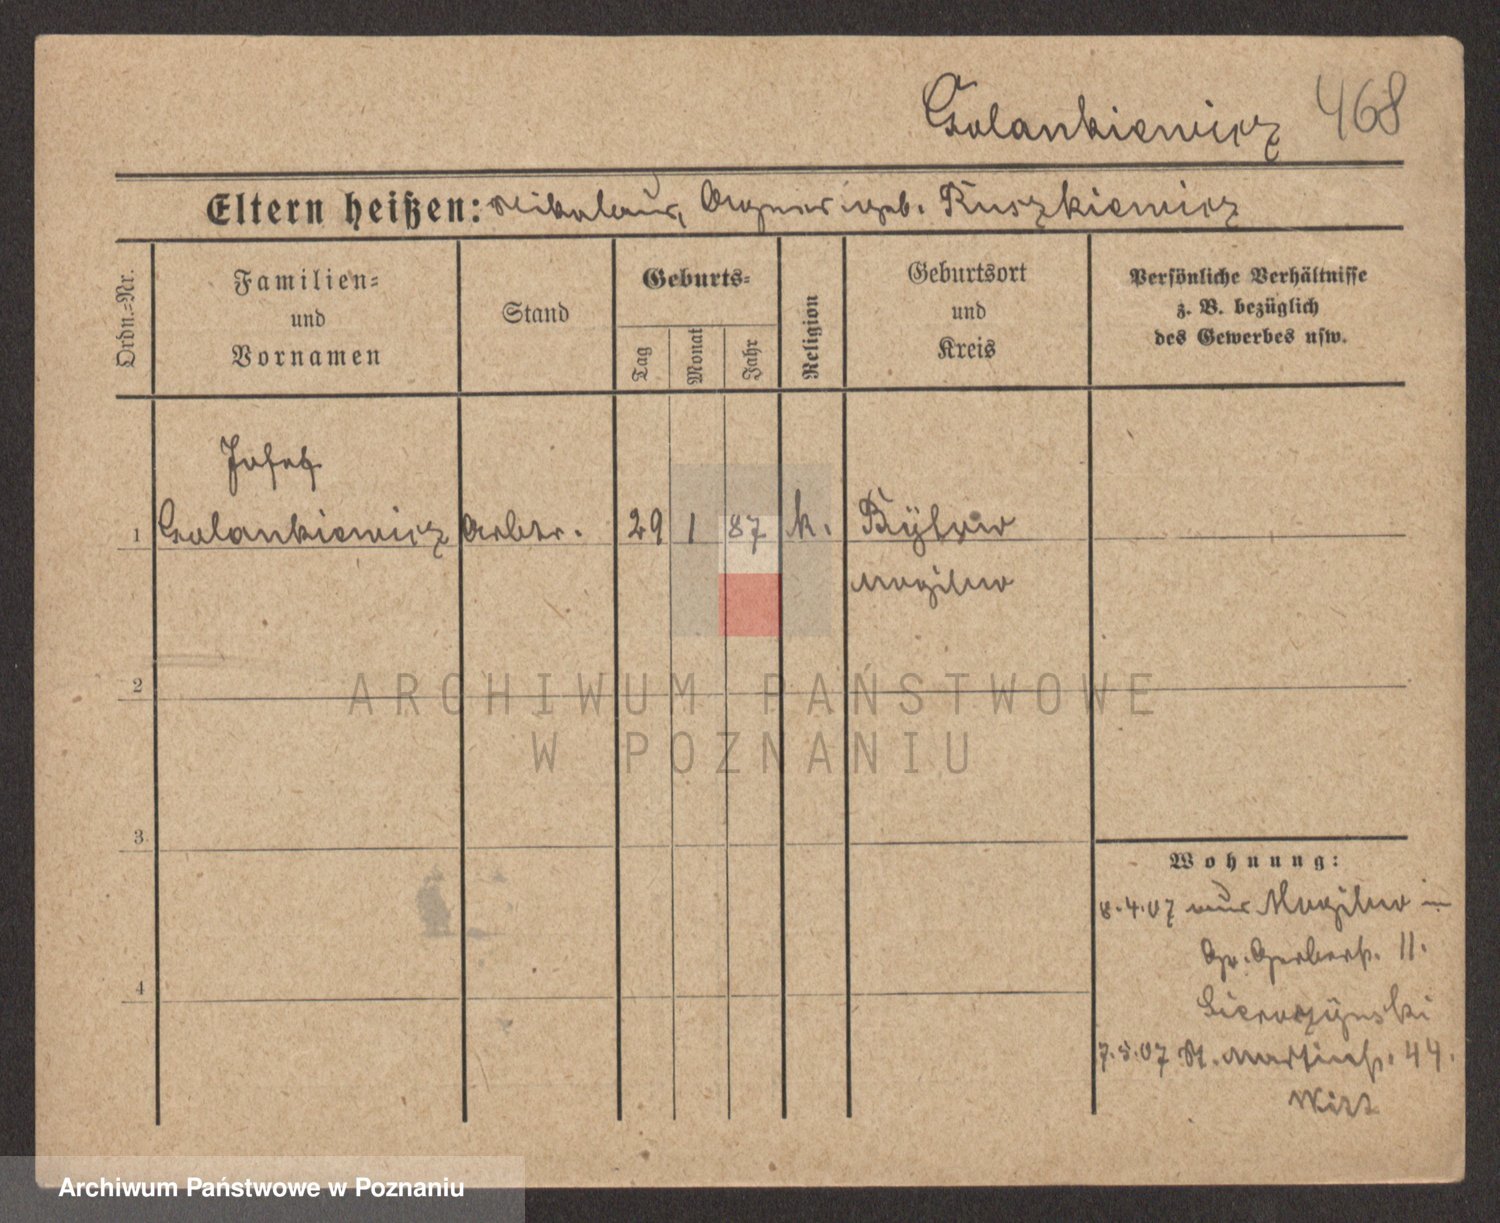 Golankiewicz 468
Eltern heißen: Nikolaus, Agnes geb. Ruszkiewicz
Ordn.-Nr.
Familien-
und
Vornamen
Stand
Geburts-
Tag
Monat
Jahr
Religion
Geburtsort
und
Kreis
Persönliche Verhältnisse
z. B. bezüglich
des Gewerbes usw.
Josef
1 Golankiewicz Arbtr. 29 1 87 k.
Mogilno
2
ARCHIWUM PAŃSTWOWE
W POZNANIU
3
Wohnung:
8.4.07 aus Mogilno in
Gr. Gerberst. 11.
4
7.5.07 St. Martinst. 44.
Archiwum Państwowe w Poznaniu